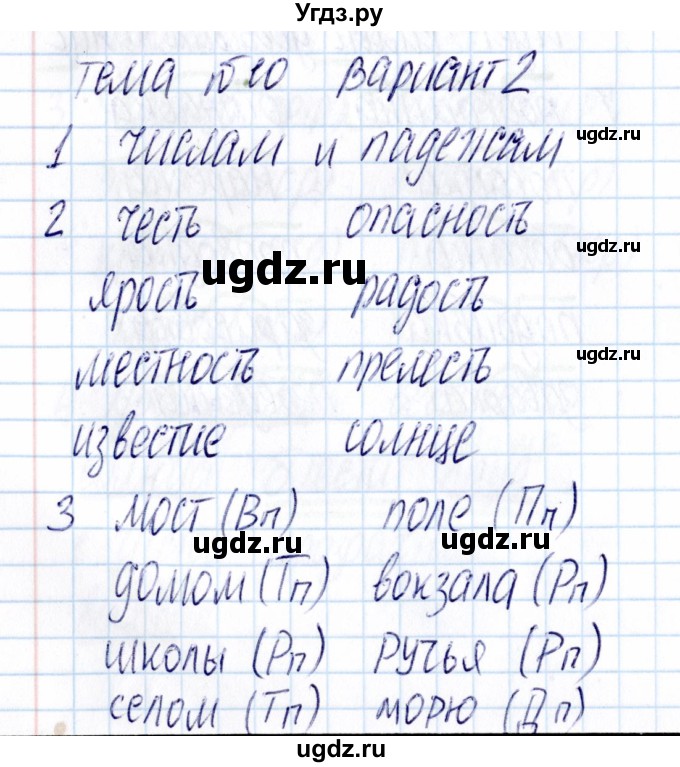 Угдз.ру
Тема №10 Вариант 2
1 числам и падежам
ugdz.ru
2 честь опасность
ugdz.ru
ugdz.ru
ярость радость
местность прелесть
ugdz.ru
известие солнце
3 мост (Вп) поле (Пп)
ugdz.ru ugdz.ru
домом (Тп) вокзала (Рп)
школы (Рп) ручья (Рп)
селом (Тп) морю (Дп)
ugdz.ru